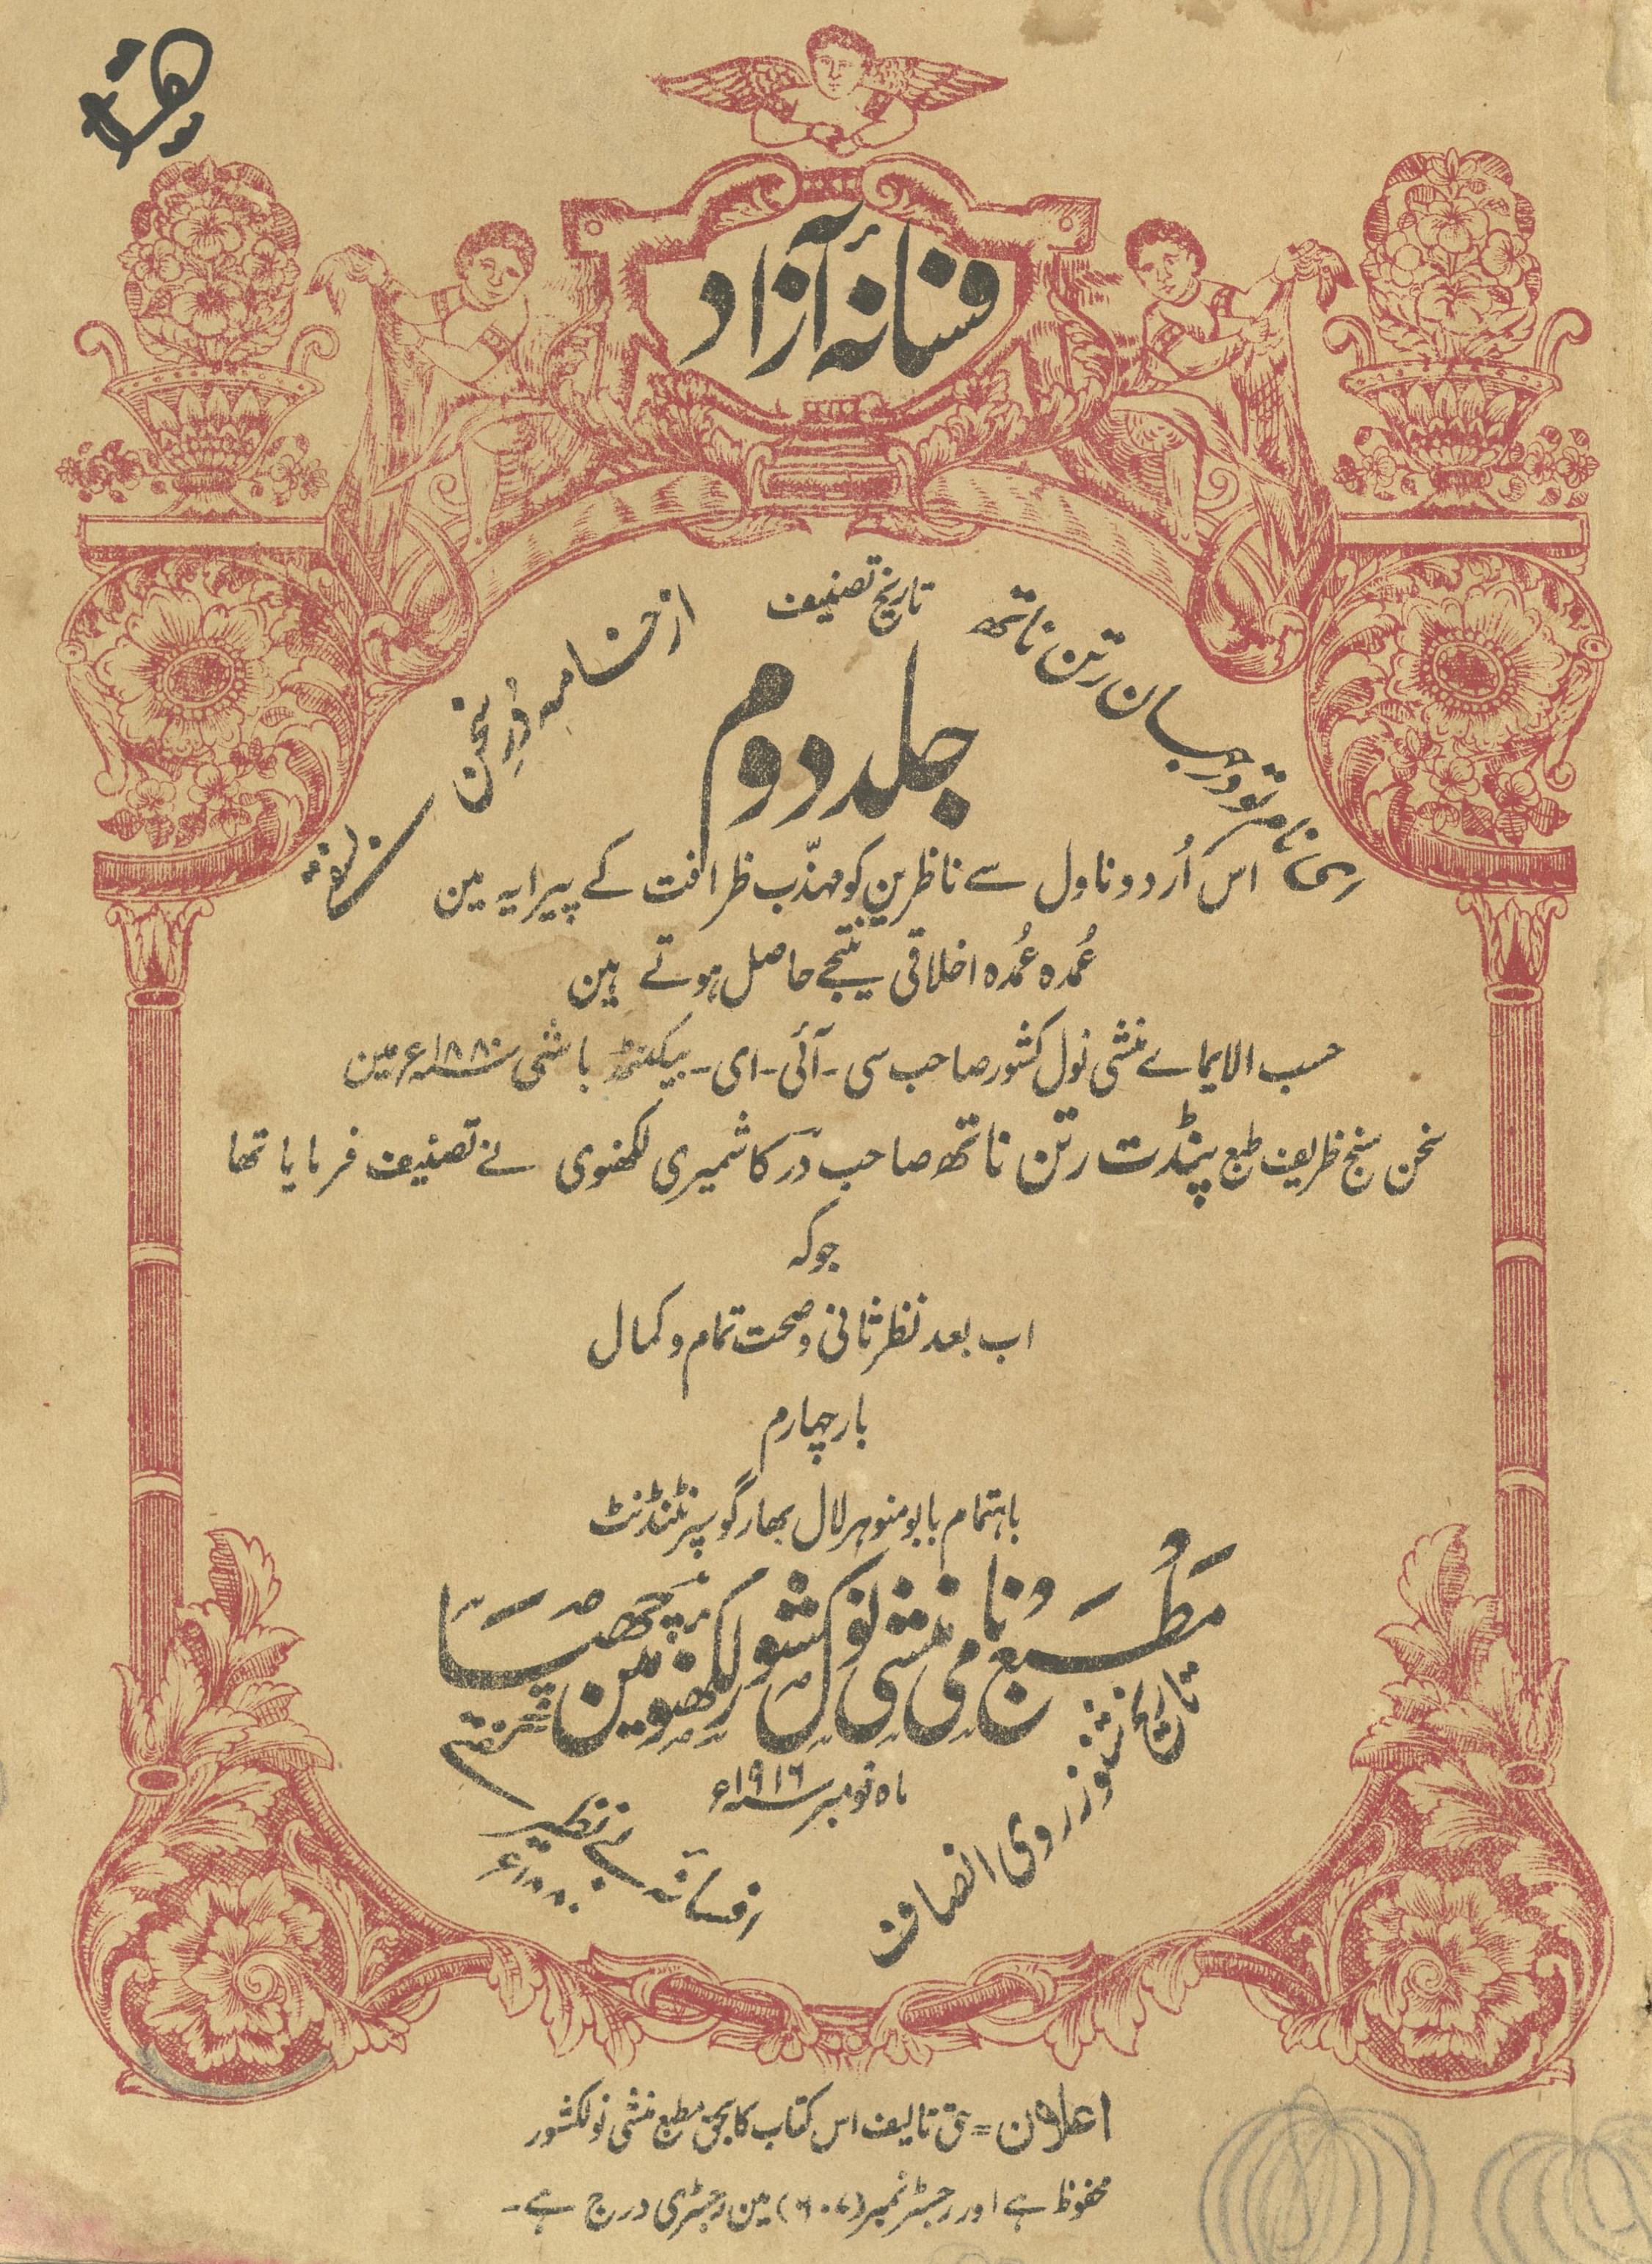 فسانۂ آزاد
تاریخ تصنیف
رتن ناتھ
از خامہ دُرِ سخن
جلد دوم
اس اُردو ناول سے ناظرین کو مہذّب ظرافت کے پیرایہ مین
عُمدہ عُمدہ اخلاقی نتیجے حاصل ہوتے ہین
حسب الایماے منشی نول کشور صاحب سی - آئی - ای - بیکنٹھ باشی سنہ ۱۸۸۰ء مین
سخن سنج ظریف طبع پنڈت رتن ناتھ صاحب در کاشمیری لکھنوی نے تصنیف فرمایا تھا
جو کہ
اب بعد نظر ثانی و صحت تمام و کمال
بار چہارم
باہتمام بابو منوہر لال بھارگو سپرنٹنڈنٹ
مَطبع نامی منشی نول کشور لکھنؤ مین چھپا
ماہ نومبر سنہ ۱۹۱۶ء
تاریخ شنو ز روی انصاف
افسانہ بے نظیر گفتم
۱۸۸۰ء
اعلان = حق تالیف اس کتاب کا بحق مطبع منشی نولکشور
محفوظ ہے اور رجسٹر نمبر (۶۰۷) مین رجسٹری درج ہے -